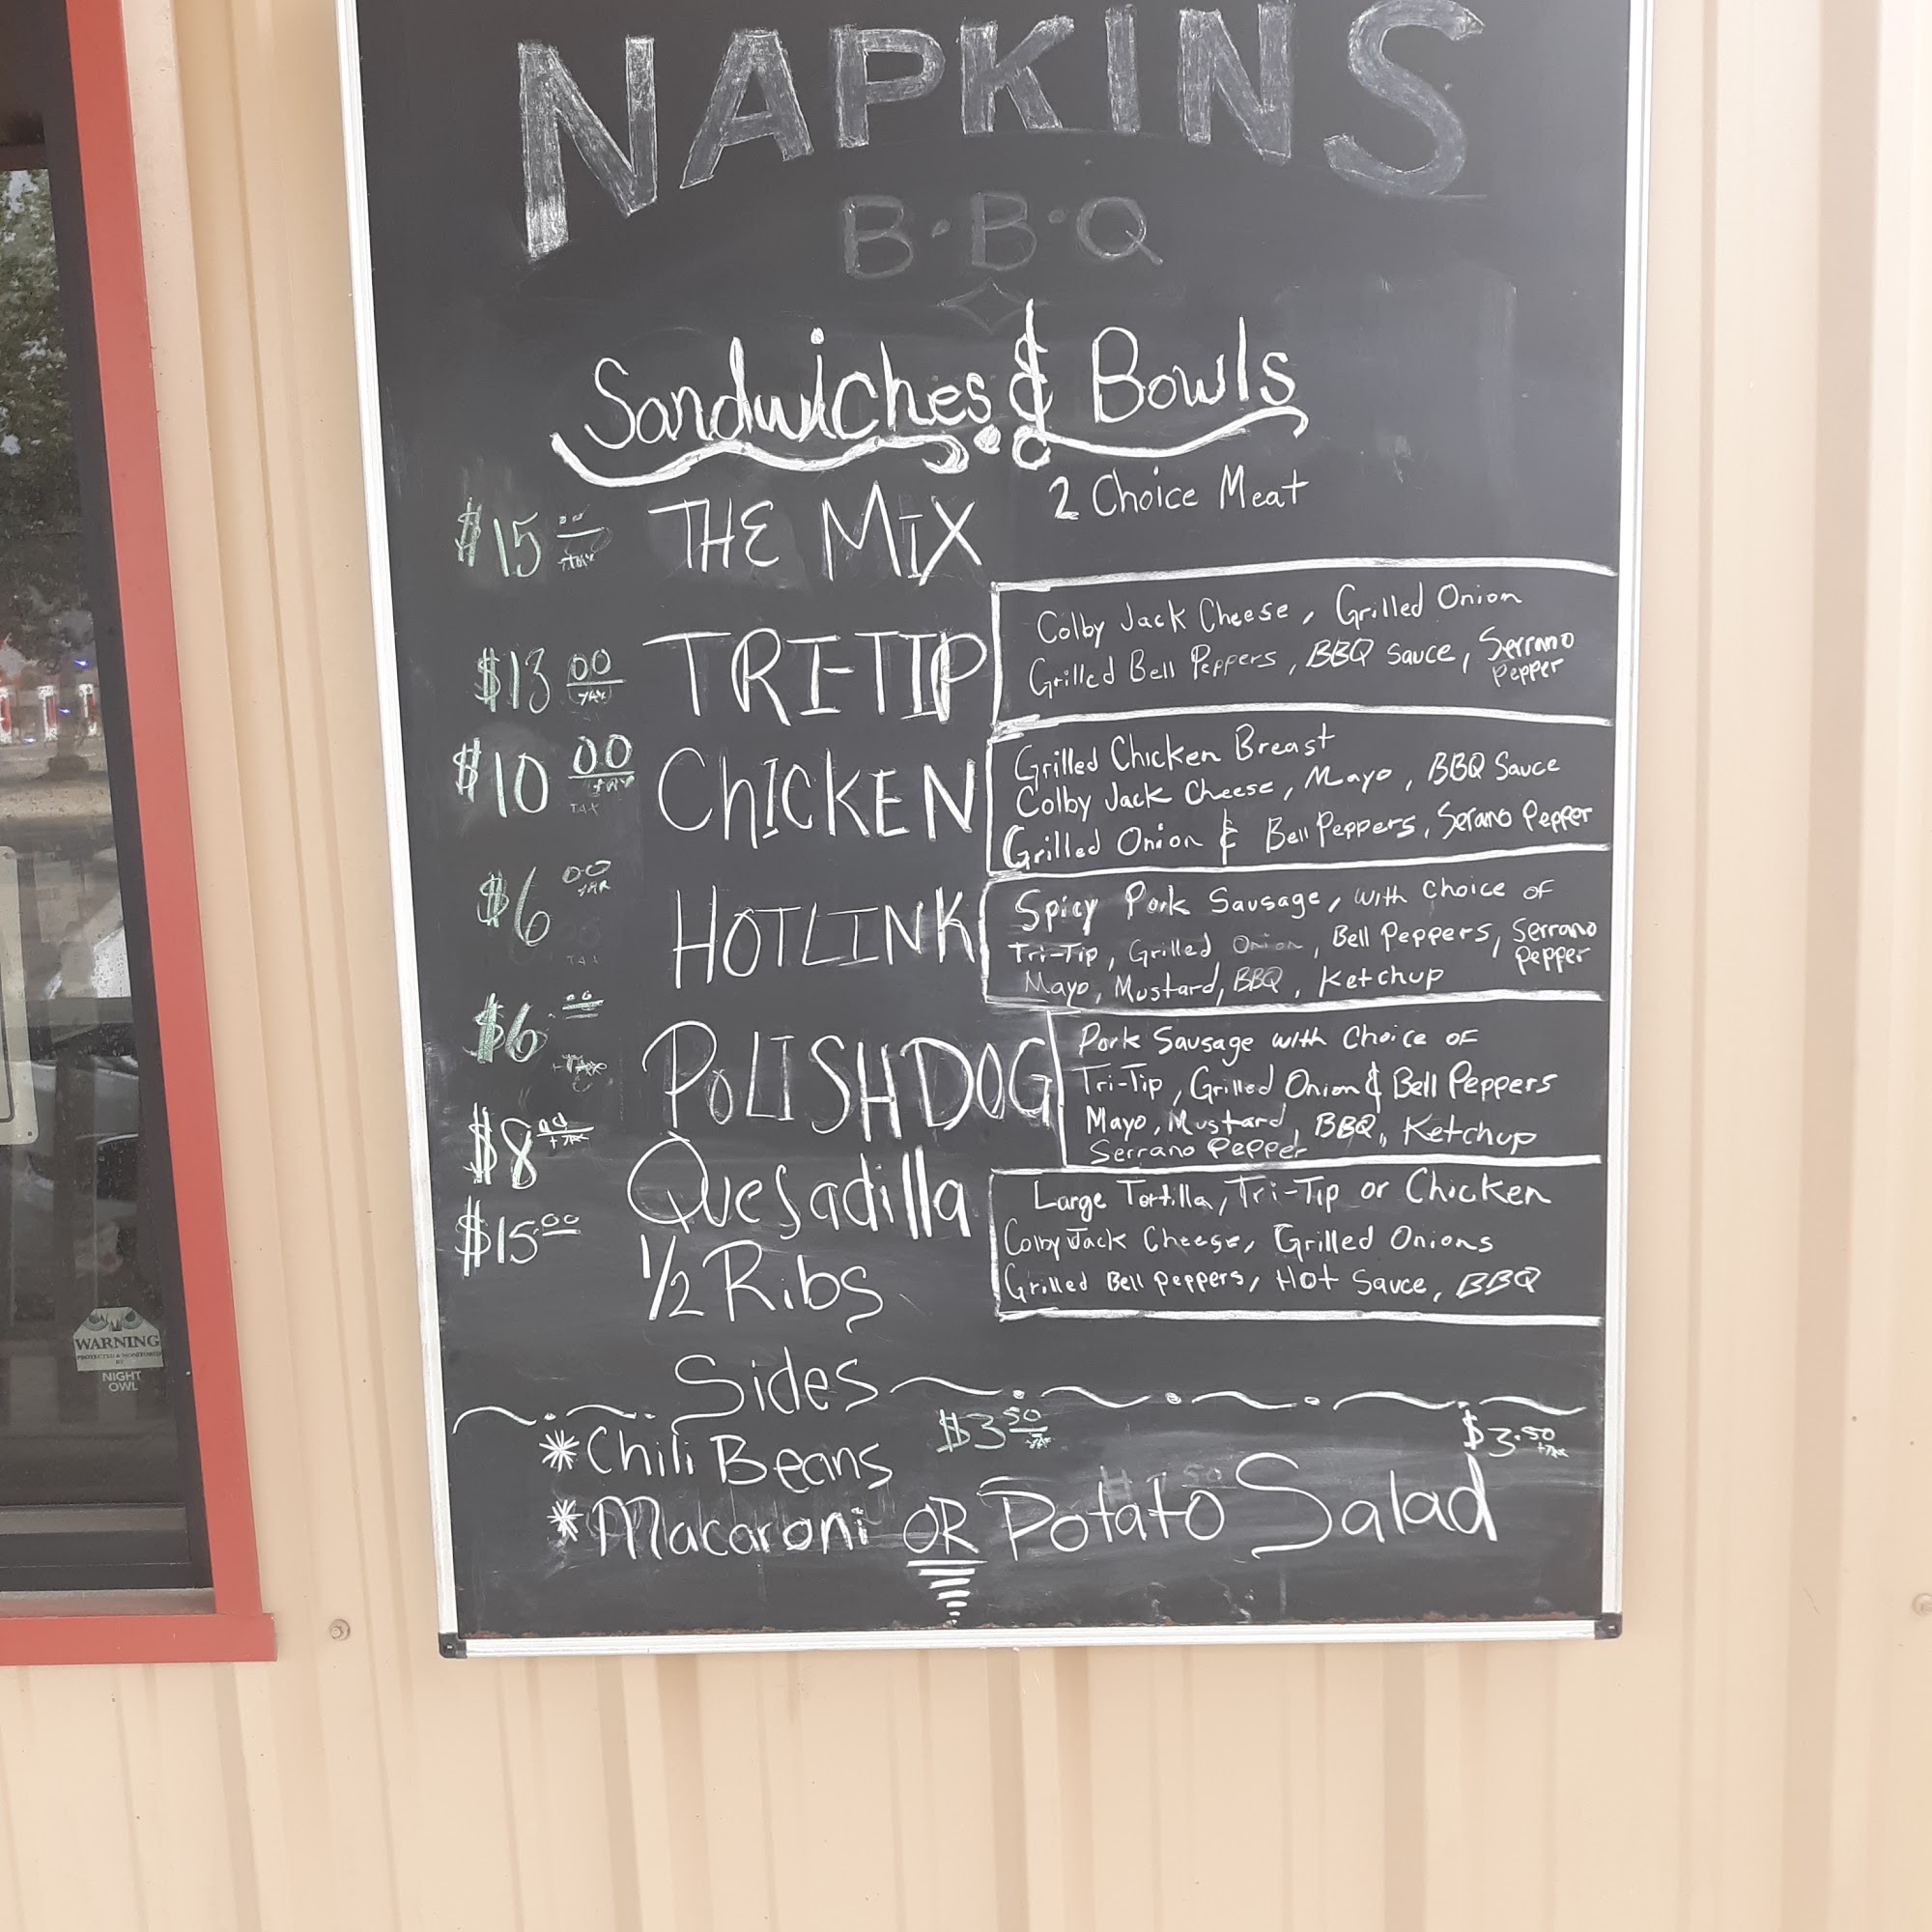 NAPKINS
B·B·Q
Sandwiches & Bowls
$15 00 +tax THE MIX 2 Choice Meat
$13 00 TAX TRI-TIP
Colby Jack Cheese, Grilled Onion
Grilled Bell Peppers, BBQ Sauce, Serrano Pepper
$10 00 +tax TAX CHICKEN
Grilled Chicken Breast
Colby Jack Cheese, Mayo, BBQ Sauce
Grilled Onion & Bell Peppers, Serano Pepper
$6 00 TAX HOTLINK
Spicy Pork Sausage, with Choice of
Tri-Tip, Grilled Onion, Bell Peppers, Serrano Pepper
Mayo, Mustard, BBQ, Ketchup
$6 00 +Tax POLISH DOG
Pork Sausage with Choice of
Tri-Tip, Grilled Onion & Bell Peppers
Mayo, Mustard, BBQ, Ketchup
Serrano Pepper
$8 +TAX Quesadilla
Large Tortilla, Tri-Tip or Chicken
Colby Jack Cheese, Grilled Onions
Grilled Bell Peppers, Hot Sauce, BBQ
$15 00 1/2 Ribs
Sides
*Chili Beans $3 50
$3.50 +TAX
*Macaroni OR Potato Salad
WARNING
PROTECTED & MONITORED
BY
NIGHT
OWL